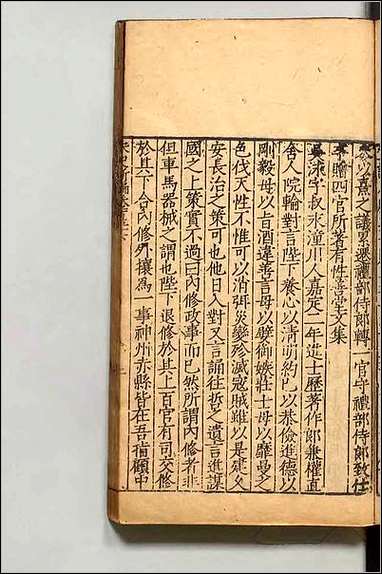 癸以嘉之議遷禮部侍郎轉一官守禮部侍郎致仕
贈四官所著有性善堂文集
吳泳字叔永潼川人嘉定二年進士歷著作郎兼權直
舍人院輪對言陛下養心以清明約己以恭儉進德以
剛毅毋以旨酒違善言毋以嬖御嫉莊士毋以靡曼之
色伐天性不惟可以消弭災變殄滅寇賊雖以是建久
安長治之策可也他日入對又言誦往哲之遺言進謀
國之上策實不過曰內修政事而已然所謂內修者非
但車馬器械之謂也陛下退修於其上百官有司交修
於其下合內修外攘為一事神州赤縣皆在吾指顧中